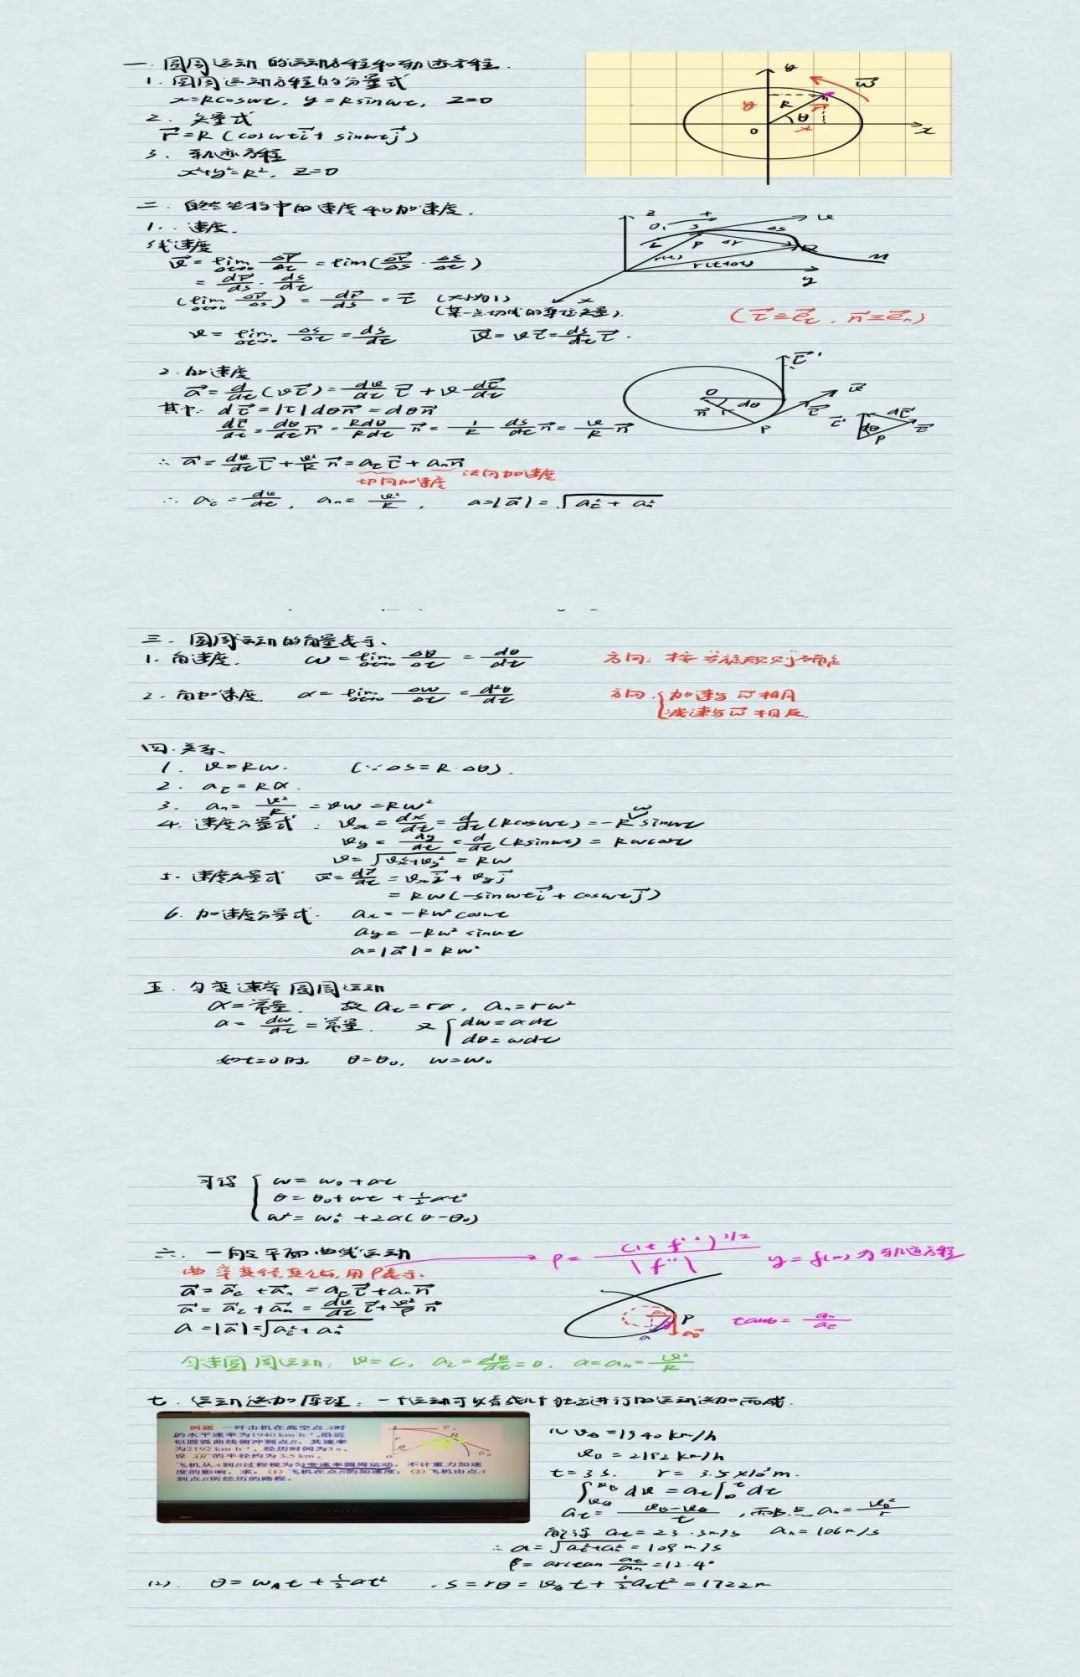 一. 圆周运动的运动方程和轨迹方程.
1. 圆周运动方程的分量式
x=Rcosωt, y=Rsinωt, z=0
2. 矢量式
r⃗=R(cosωt i⃗+sinωt j⃗)
3. 轨迹方程
x²+y²=R², z=0
y
ω⃗
R
r⃗
y
θ
0
x
x
二. 自然坐标中的速度和加速度.
1. 速度.
线速度
v⃗=lim Δt→0 Δr⃗/Δt = lim(Δr⃗/Δs · Δs/Δt)
= dr⃗/ds · ds/dt
(lim Δt→0 Δr⃗/Δs) = dr⃗/ds = τ⃗ (大小为1)
(某一点切线的单位矢量).
v= lim Δt→0 Δs/Δt = ds/dt v⃗=vτ⃗=ds/dt τ⃗.
z
r(t+Δt)
y
x
(τ⃗≡e⃗t, n⃗≡e⃗n)
2. 加速度
a⃗=d/dt(vτ⃗)=dv/dt τ⃗+v dτ⃗/dt
其中: dτ⃗=|τ|dθn⃗=dθn⃗
dτ⃗/dt=dθ/dt n⃗=Rdθ/Rdt n⃗=1/R ds/dt n⃗=v/R n⃗
∴ a⃗=dv/dt τ⃗+v²/R n⃗=aττ⃗+ann⃗
切向加速度 法向加速度
∴ aτ=dv/dt, an=v²/R, a=|a⃗|=√(aτ²+an²)
τ⃗'
v⃗
O
dθ
n⃗
τ⃗
P
τ⃗'
dτ⃗
dθ
τ⃗
P
三. 圆周运动的角量表示.
1. 角速度. ω=lim Δt→0 Δθ/Δt = dθ/dt 方向: 按右手螺旋规则确定
2. 角加速度. α=lim Δt→0 Δω/Δt = d²θ/dt 方向{加速与ω⃗相同
减速与ω⃗相反
四. 关系.
1. v=Rω. (∵Δs=R·Δθ).
2. aτ=Rα.
3. an=v²/R=vω=Rω²
4. 速度分量式: vx=dx/dt=d/dt(Rcosωt)=-Rωsinωt
vy=dy/dt=d/dt(Rsinωt)=Rωcosωt
v=√(vx²+vy²)=Rω
5. 速度矢量式 v⃗=dr⃗/dt=vx i⃗+vy j⃗
=Rω(-sinωt i⃗+cosωt j⃗)
6. 加速度分量式. ax=-Rω²cosωt
ay=-Rω²sinωt
a=|a⃗|=Rω²
五. 匀变速率圆周运动
α=常量, 故aτ=rα, an=rω²
α=dω/dt=常量. 又{dω=αdt
dθ=ωdt
如t=0时, θ=θ0, ω=ω0
可得{ω=ω0+αt
θ=θ0+ωt+½αt²
ω²=ω0²+2α(θ-θ0)
六. 一般平面曲线运动 ρ=(1+f'²)^3/2/|f''| y=f(x)为轨迹方程
曲率半径变化, 用ρ表示.
a⃗=a⃗τ+a⃗n=aττ⃗+ann⃗
a⃗=a⃗τ+a⃗n=dv/dt τ⃗+v²/ρ n⃗
a=|a⃗|=√(aτ²+an²)
P
a
tanθ=an/aτ
匀速圆周运动: v=C, aτ=dv/dt=0, a=an=v²/R
七. 运动叠加原理: 一个运动可以看成几个独立进行的运动叠加而成.
例题 一歼击机在高空点A时
的水平速率为1940 km·h⁻¹,沿近
似圆弧曲线俯冲到点B, 其速率
为2192 km·h⁻¹, 经历时间为3s,
设AB的半径约为3.5km,
飞机从A到B过程视为匀变速率圆周运动, 不计重力加速
度的影响, 求: (1) 飞机在点B的加速度; (2) 飞机由点A
到点B所经历的路程.
(1) vA=1940 km/h
vB=2192 km/h
t=3s. r=3.5×10³m.
∫vA^vB dv=aτ∫0^t dt
aτ=(vB-vA)/t, 而B点an=vB²/r
aτ=23.3m/s an=106m/s
∴a=√(aτ²+an²)=109m/s
β=arctan aτ/an=12.4°
(2). θ=ωAt+½αt². s=rθ=vAt+½aτt²=1722m